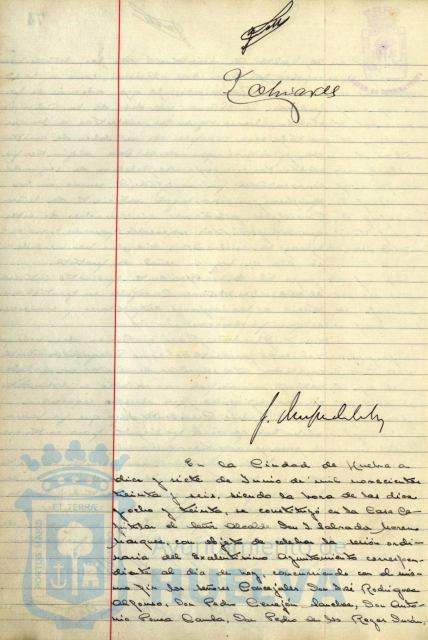 En la Ciudad de Huelva a
diez y siete de Junio de mil novecientos
treinta y seis, siendo la hora de las diez
ocho y treinta, se constituyó en la Casa Ca-
pitular el Señor Alcalde Don Salvador Moreno
Márquez, con objeto de celebrar la sesión ordi-
naria del Excelentísimo Ayuntamiento correspon-
diente al día de hoy, concurriendo con el mis-
mo fin los señores Concejales Don José Rodríguez
Alfonso, Don Pedro Cerrejón Sánchez, Don Anto-
nio Ponce Don Pedro de los Reyes
PORTUS MARIS
ET TERRAE
HUELVA